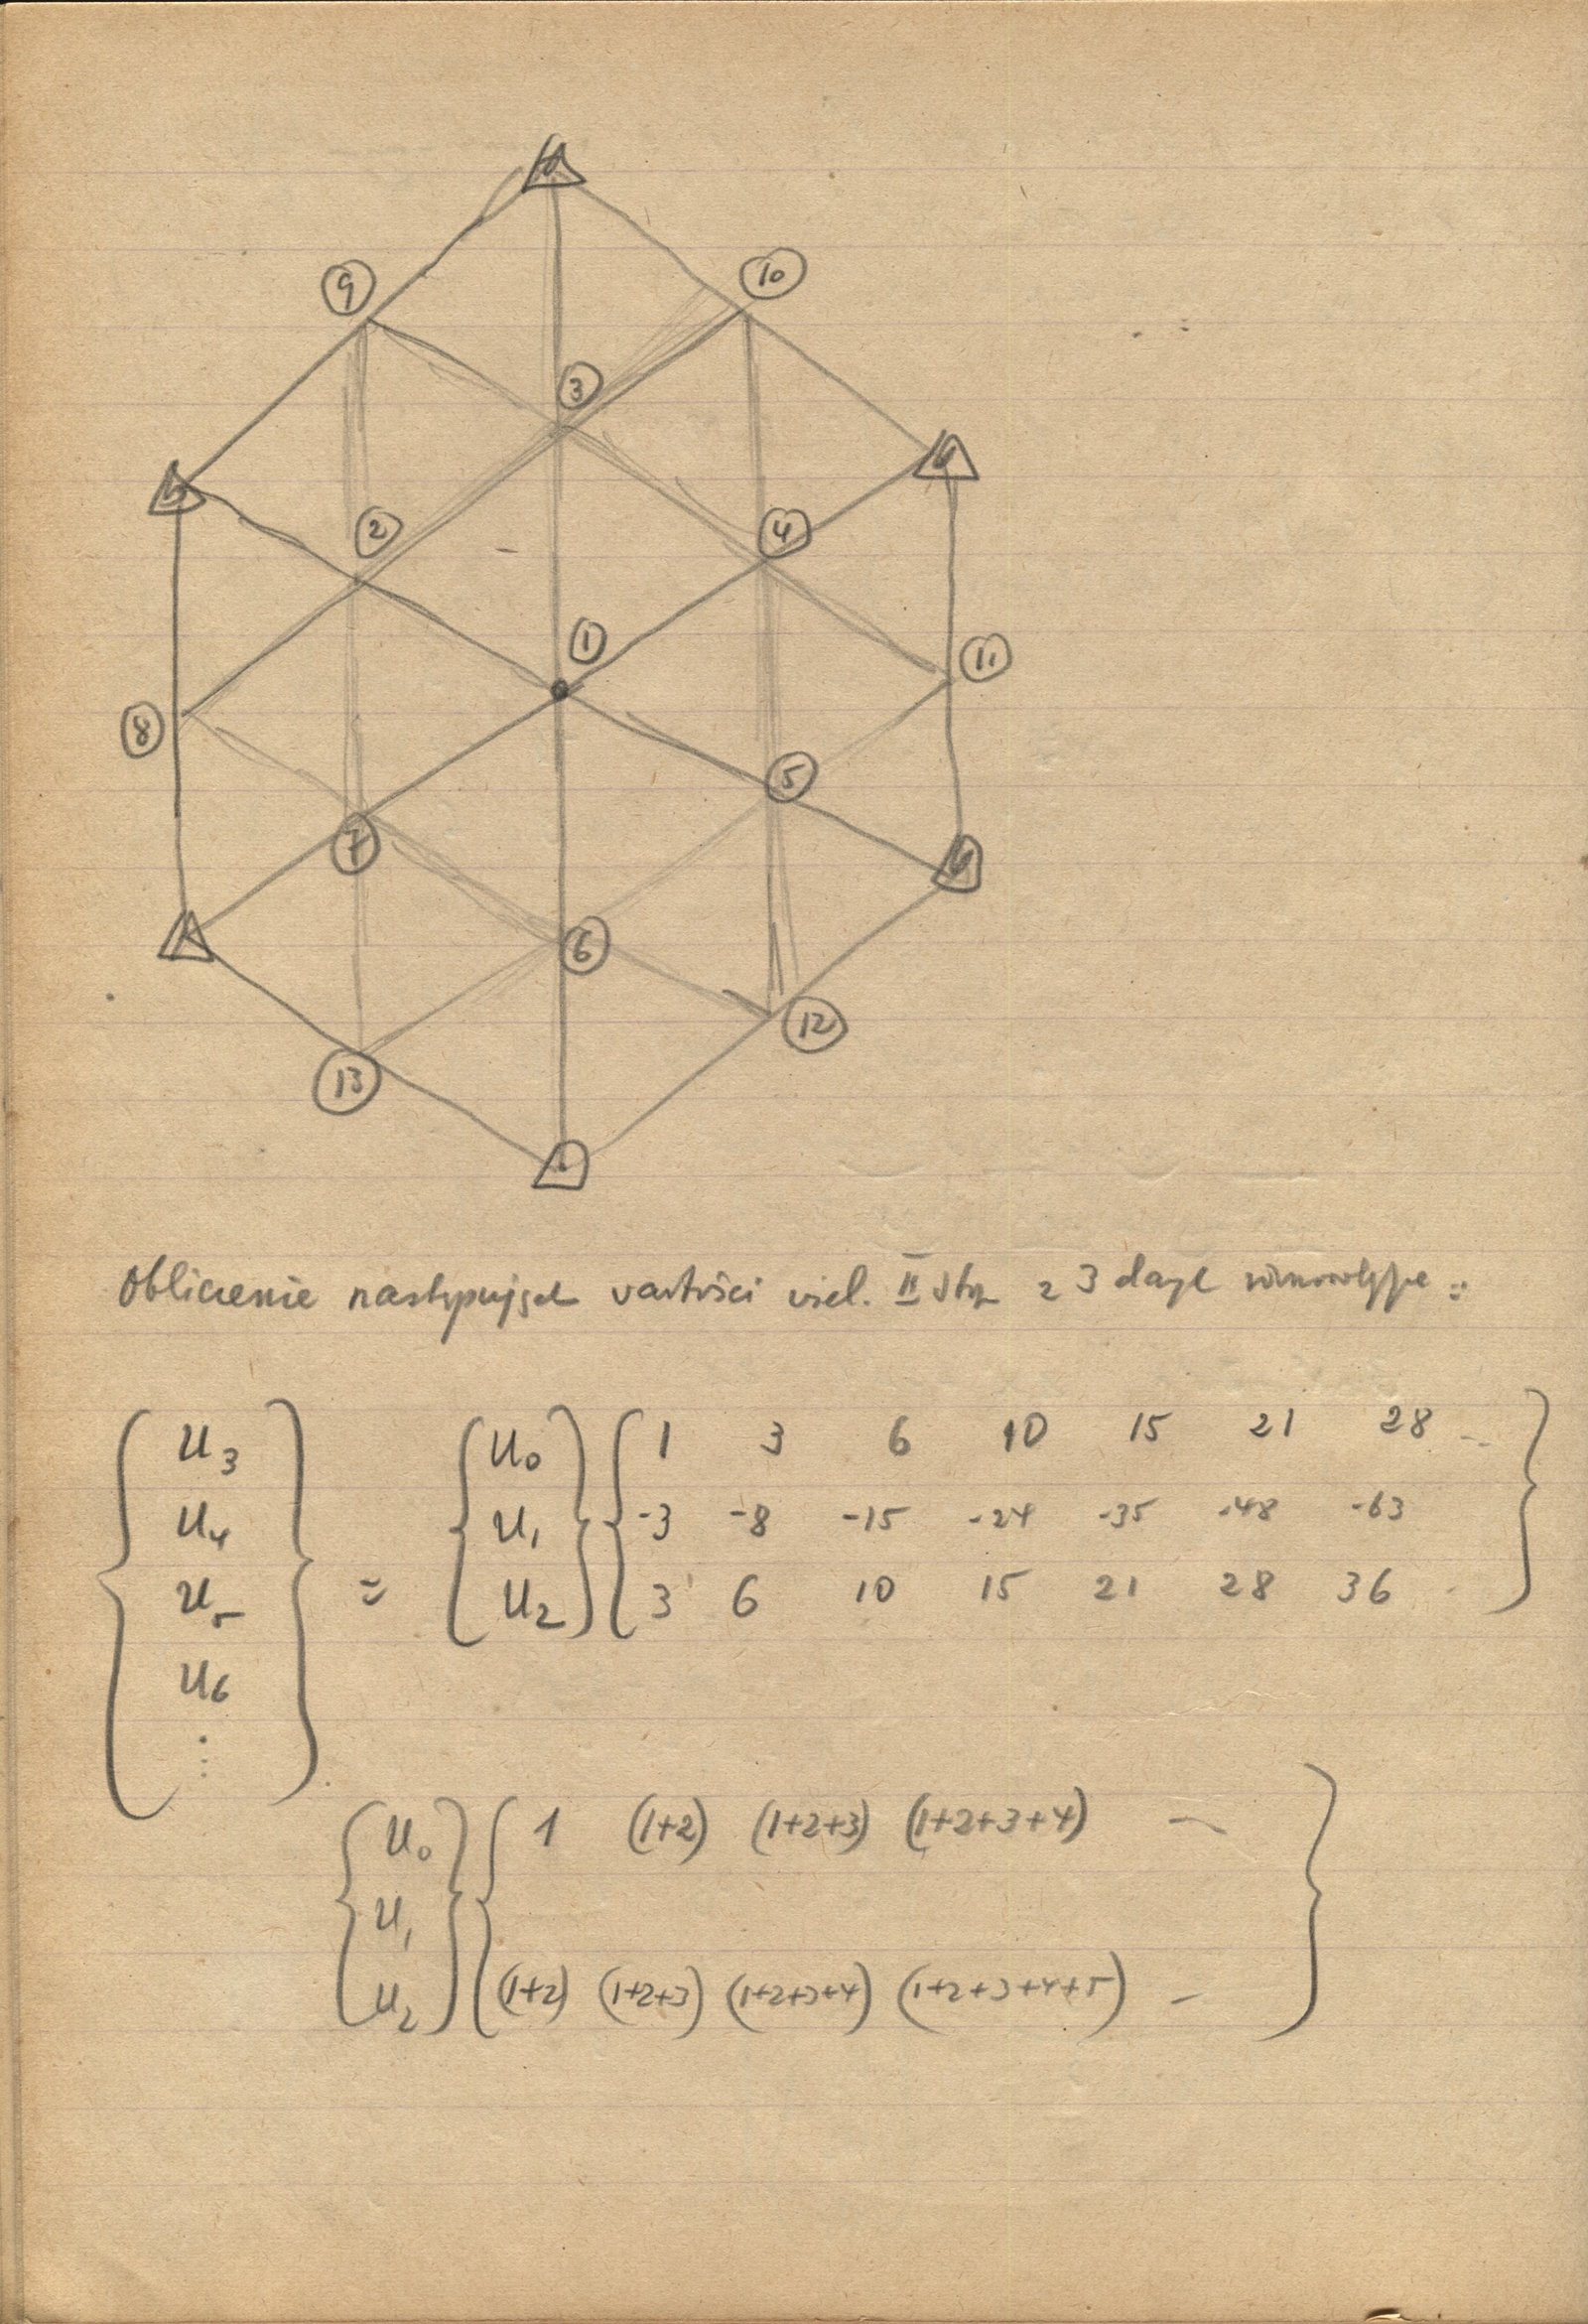 9
10
3
2
4
1
11
8
5
7
6
12
13
Obliczenie następujących wartości wiel. II stop z 3 danych równoodległych :
u3
u4
u5
u6
⋮
=
u0
u1
u2
1 3 6 10 15 21 28 ...
-3 -8 -15 -24 -35 -48 -63
3 6 10 15 21 28 36 .
u0
u1
u2
1 (1+2) (1+2+3) (1+2+3+4) —
(1+2) (1+2+3) (1+2+3+4) (1+2+3+4+5) —